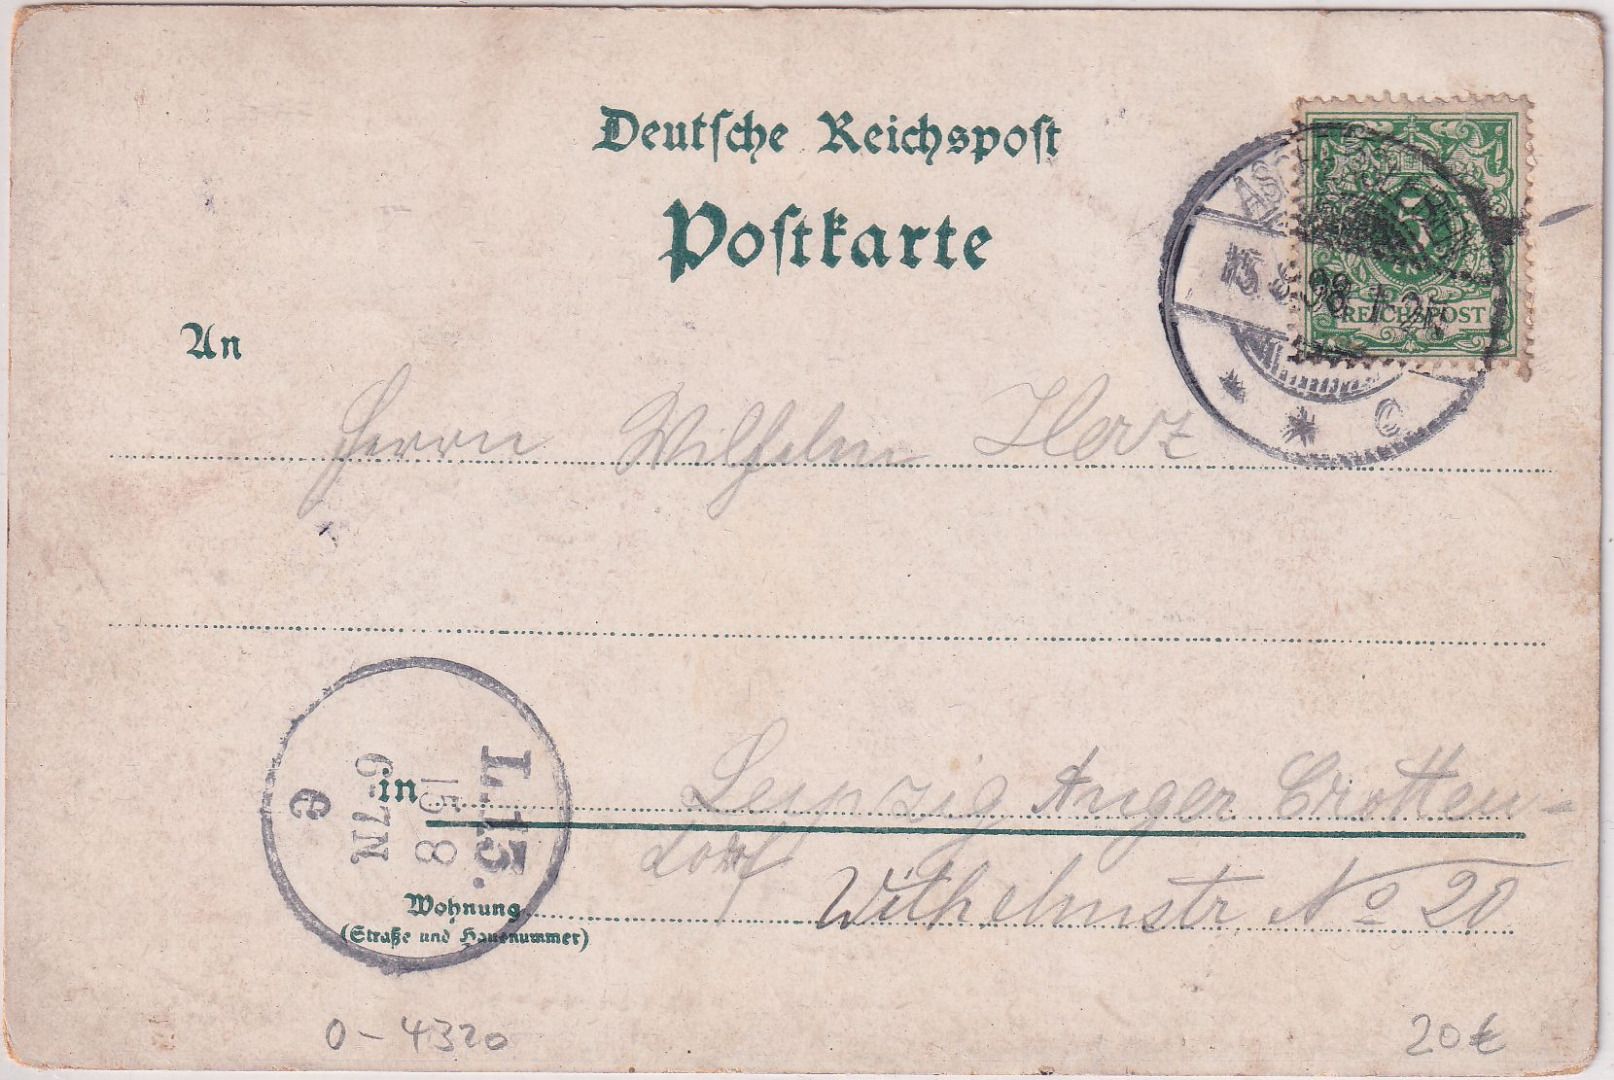 Deutsche Reichspost
Postkarte
ASCHERSLEBEN
15.8.98 1-2N
* * c
5
REICHSPOST
An
Herrn Wilhelm Herz
in Leipzig Anger Crotten-
dorf
Wilhelmstr. No 20
Wohnung
(Straße und Hausnummer)
L.13.
15 8
6-7N
e
0-4320
20€